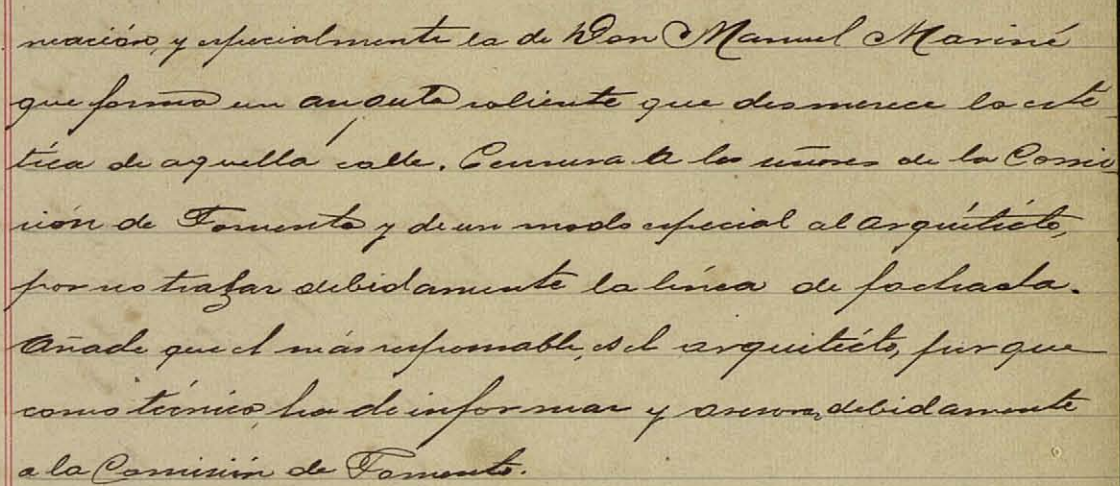 neación, y especialmente la de Don Manuel Mariné
que forma un angulo saliente que desmerece la esté
tica de aquella calle. Censura a los señores de la Comi
sión de Fomento y de un modo especial al arquitécto,
por no trazar debidamente la línea de fachada.
Añade que el más responsable, es el arquitécto, por que
como técnico, ha de informar y asesorar debidamente
a la Comisión de Fomento.